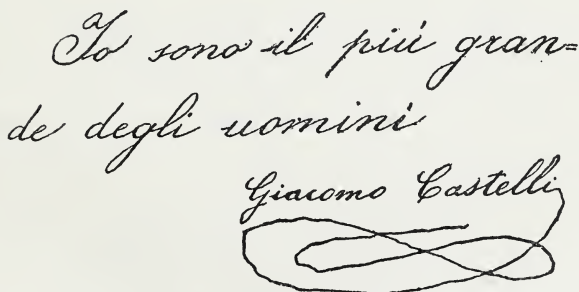 Io sono il piú gran=
de degli uomini
Giacomo Castelli